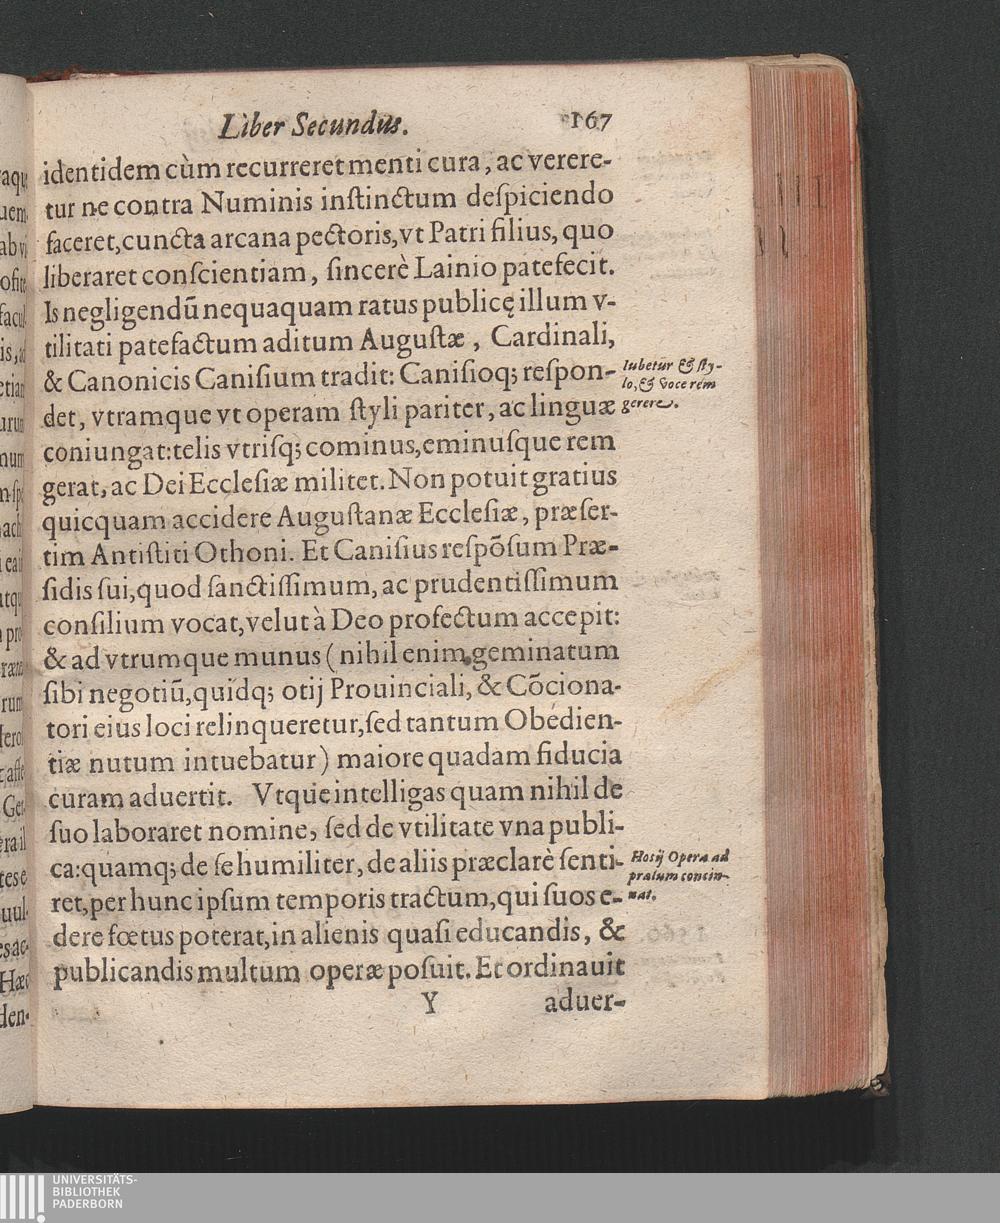 Liber Secundus. 167
identidem cùm recurreret menti cura, ac verere-
tur ne contra Numinis inſtinctum deſpiciendo
faceret, cuncta arcana pectoris, vt Patri filius, quo
liberaret conſcientiam, ſincerè Lainio patefecit.
Is negligendũ nequaquam ratus publicę illum v-
tilitati patefactum aditum Auguſtæ, Cardinali,
& Canonicis Caniſium tradit: Caniſioq; reſpon-
Iubetur & ſty-
lo, & voce rem
gerere.
det, vtramque vt operam ſtyli pariter, ac linguæ
coniungat: telis vtriſq; cominus, eminuſque rem
gerat, ac Dei Eccleſiæ militet. Non potuit gratius
quicquam accidere Auguſtanæ Eccleſiæ, præſer-
tim Antiſtiti Othoni. Et Caniſius reſpõſum Præ-
ſidis ſui, quod ſanctiſſimum, ac prudentiſſimum
conſilium vocat, velut à Deo profectum accepit:
& ad vtrumque munus (nihil enim geminatum
ſibi negotiũ, quidq; otij Prouinciali, & Cõciona-
tori eius loci relinqueretur, ſed tantum Obedien-
tiæ nutum intuebatur) maiore quadam fiducia
curam aduertit. Vtque intelligas quam nihil de
ſuo laboraret nomine, ſed de vtilitate vna publi-
ca: quamq; de ſe humiliter, de aliis præclarè ſenti-
Hosij Opera ad
prælum concin-
nat.
ret, per hunc ipſum temporis tractum, qui ſuos e-
dere fœtus poterat, in alienis quaſi educandis, &
publicandis multum operæ poſuit. Et ordinauit
Y aduer-
UNIVERSITÄTS-
BIBLIOTHEK
PADERBORN